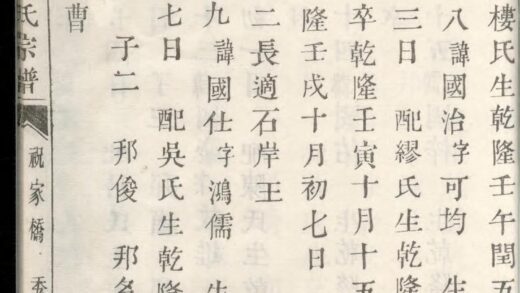 樓氏生乾隆壬午閏五
八 諱國治字可均 生
三日 配繆氏生乾隆
卒乾隆壬寅十月十五
隆壬戌十月初七日
二長適石岸王
九 諱國仕字鴻儒 生
七日 配吳氏生乾隆
子二 邦俊 邦名
曹
氏宗譜
祝家橋